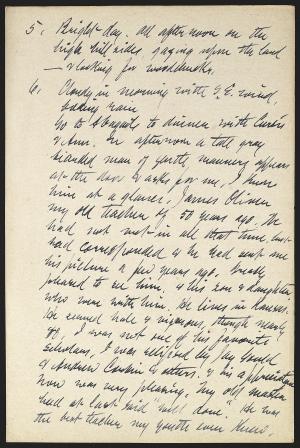 5. Bright day. all afternoon on the
high hill sides, gazing upon the land
— & looking for woodchucks.
6. Cloudy in morning with S.E. wind,
rain
Go to to dinner with Curtis
& Ann. In afternoon a tall gray
bearded man of gentle manners appears
at the door & asks for me, I knew
him at a glance, James Oliver
my old teacher of 50 years ago. We
had not met in all that time, but
had corresponded & he had sent me
his picture a few years ago. Greatly
pleased to see him, & his son & daughter
who were with him. He lives in Kansas.
He seemed hale & vigorous, though nearly
80. I was not one of his favorite
scholars, I was eclipsed by Jay Gould
& Andrew Corbin & others, & his appreciation
now was very pleasing. My old master
had at last said "well done." He was
the best teacher my youth ever knew.